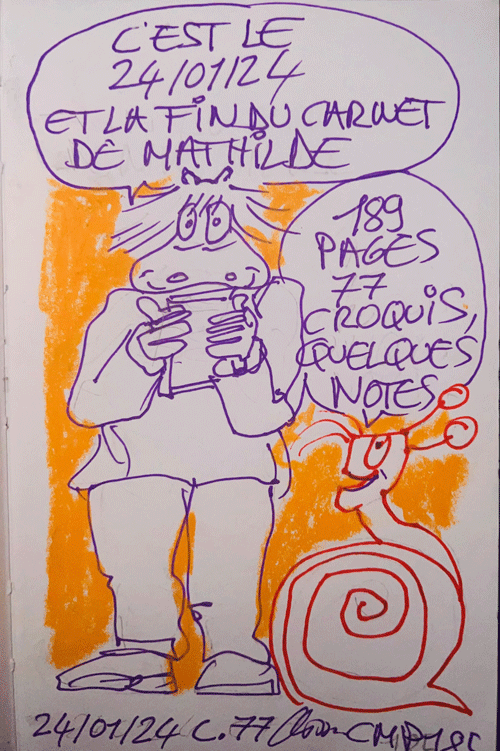 C'EST LE
24/01/24
ET LA FIN DU CARNET
DE MATHILDE
189
PAGES
77
CROQUIS,
QUELQUES
NOTES
24/01/24 C.77